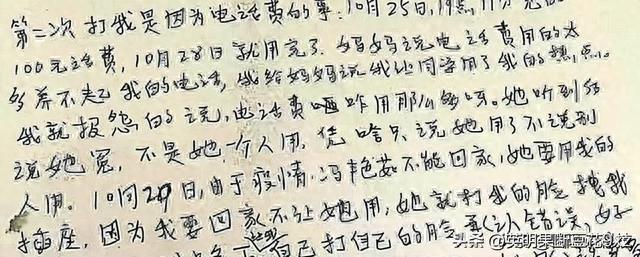 第二次打我是因为电话费的事:10月25日,19点,
100元话费,10月28日就用完了.妈妈说电话费用的太
多养不起我的电话,我给妈妈说我让同学用了我的热点。
我就报怨的说,电话费咂咋用那么多呀。她听到后
说她冤,不是她一个人用,凭啥只说她用了不说别
人用。10月29日,由于疫情,冯艳茹不能回家,她要用我的
插座,因为我要回家不让她用,她就打我的脸,拽我
自己打自己的脸,承认错误,好
头条